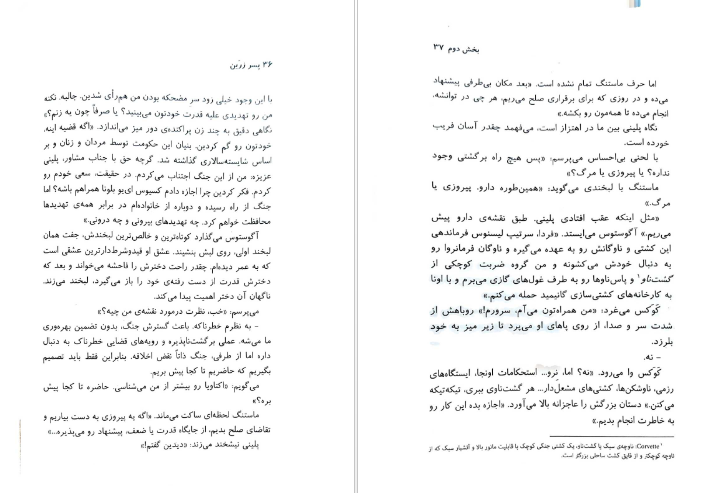 ۳۶ پسر زرّین
با این وجود خیلی زود سر مضحکه بودن من هم‌رأی شدین. جالبه. نکنه
من رو تهدیدی علیه قدرت خودتون می‌بینید؟ یا صرفاً چون یه زنم؟»
نگاهی دقیق به چند زن پراکنده‌ی دور میز می‌اندازد. «اگه قضیه اینه،
خودتون رو گم کردین. بنیان این حکومت توسط مردان و زنان و بر
اساس شایسته‌سالاری گذاشته شد. گرچه حق با جناب مشاور، پلینی
عزیزه: من از این جنگ اجتناب می‌کردم. در حقیقت، سعی خودم رو
کردم. فکر کردین چرا اجازه دادم کسیوس ای‌یو بلونا همراهم باشه؟ اما
جنگ از راه رسیده و دوباره از خانواده‌ام در برابر همه‌ی تهدیدها
محافظت خواهم کرد. چه تهدیدهای بیرونی و چه درونی.»
آگوستوس می‌گذارد کوتاه‌ترین و خالص‌ترین لبخندش، جفت همان
لبخند اولی، روی لبش بنشیند. عشق او قیدوشرط‌دارترین عشقی است
که به عمر دیده‌ام. چقدر راحت دخترش را فاحشه می‌خواند و بعد که
دخترش قدرت از دست رفته‌ی خود را باز می‌گیرد، لبخند می‌زند.
ناگهان آن دختر اهمیت پیدا می‌کند.
می‌پرسم: «خب، نظرت درمورد نقشه‌ی من چیه؟»
- به نظرم خطرناکه. باعث گسترش جنگ، بدون تضمین بهره‌وری
ما می‌شه. عملی برگشت‌ناپذیره و رویه‌های قضایی خطرناک به دنبال
داره اما از طرفی، جنگ ذاتاً نقض اخلاقه. بنابراین فقط باید تصمیم
بگیریم که حاضریم تا کجا پیش بریم.
می‌گویم: «اکتاویا رو بیشتر از من می‌شناسی. حاضره تا کجا پیش
بره؟»
ماستنگ لحظه‌ای ساکت می‌ماند. «اگه یه پیروزی به دست بیاریم و
تقاضای صلح بدیم، از جایگاه قدرت یا ضعف، پیشنهاد رو می‌پذیره...»
پلینی نیشخند می‌زند: «دیدین گفتم!»
بخش دوم ۳۷
اما حرف ماستنگ تمام نشده است. «بعد مکان بی‌طرفی پیشنهاد
می‌ده و در روزی که برای برقراری صلح می‌ریم، هر چی در توانشه،
انجام می‌ده تا همه‌مون رو بکشه.»
نگاه پلینی بین ما در اهتزاز است، می‌فهمد چقدر آسان فریب
خورده است.
با لحنی بی‌احساس می‌پرسم: «پس هیچ راه برگشتی وجود
نداره؟ یا پیروزی یا مرگ؟»
ماستنگ با لبخندی می‌گوید: «همین‌طوره دارو. پیروزی یا
مرگ.»
«مثل اینکه عقب افتادی پلینی. طبق نقشه‌ی دارو پیش
می‌ریم.» آگوستوس می‌ایستد. «فردا، سرتیپ لیسنوس فرماندهی
این کشتی و ناوگانش رو به عهده می‌گیره و ناوگان فرمانروا رو
به دنبال خودش می‌کشونه و من گروه ضربت کوچکی از
گشت‌ناو¹ و پاس‌ناوها رو به طرف غول‌های گازی می‌برم و با اونا
به کارخانه‌های کشتی‌سازی گانیمید حمله می‌کنم.»
کَوَکس می‌غرد: «من همراه‌تون می‌آم، سرورم!» روباهش از
شدت سر و صدا، از روی پاهای او می‌پرد تا زیر میز به خود
بلرزد.
- نه.
کَوَکس وا می‌رود. «نه؟ اما، نرو... استحکامات اونجا، ایستگاه‌های
رزمی، ناوشکن‌ها، کشتی‌های مشعل‌دار... هر گشت‌ناوی ببری، تیکه‌تیکه
می‌کنن.» دستان بزرگش را عاجزانه بالا می‌آورد. «اجازه بده این کار رو
به خاطرت انجام بدیم.»
¹ Corvette: ناوچه‌ی سبک یا گشت‌ناو، یک کشتی جنگی کوچک با قابلیت مانور بالا و آتشبار سبک که از
ناوچه کوچکتر و از قایق گشت ساحلی بزرگتر است.